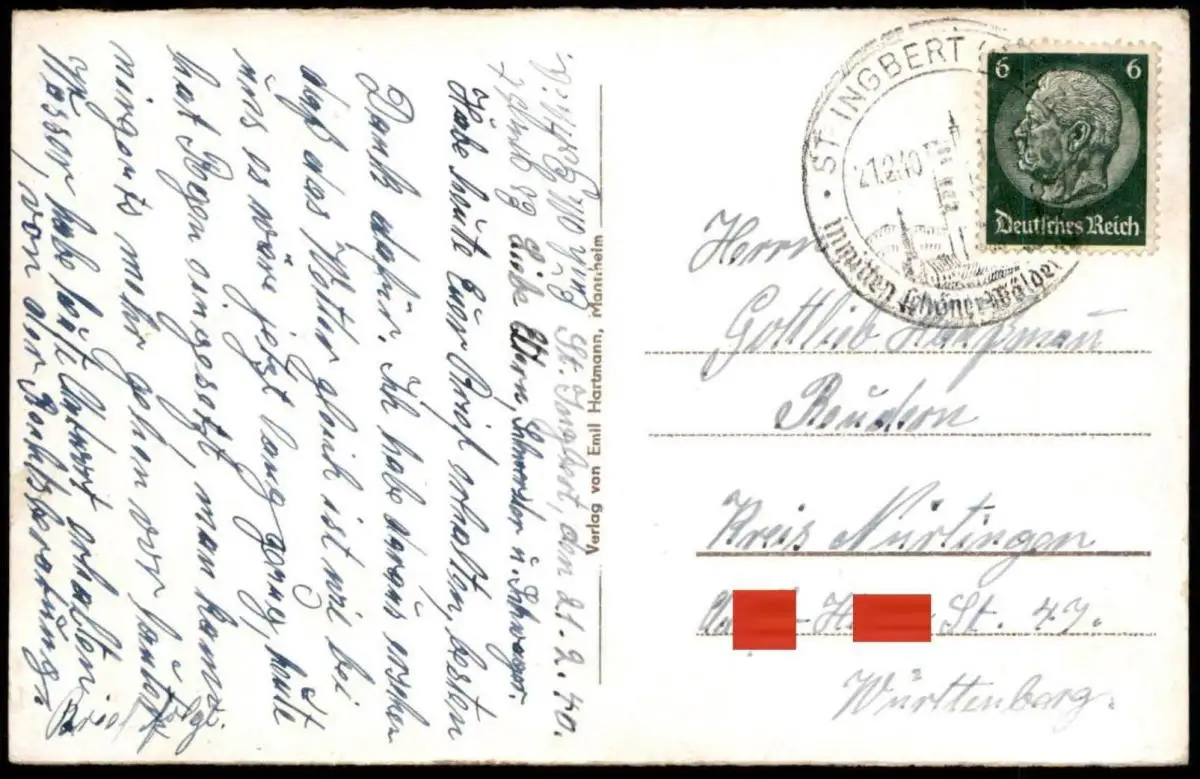 St. Ingbert, den 21.2.40.
Liebe Eltern, Schwester u. Schwager.
Habe heute Euer erhalten, besten
Dank dafür. Ich habe daraus ersehen
daß das Wetter gleich ist wie bei
uns es wäre jetzt lang genug, heute
hat Regen eingesetzt, man kann
nirgents mehr gehen vor lauter
Wasser, habe letzt Antwort erhalten
von der Rechtsberatung.
Brief folgt.
Verlag von Emil Hartmann, Mannheim
ST. INGBERT
21.2.40
inmitten schöner Wälder
6 6
Deutsches Reich
Herrn
Gottlieb
Beuren
Kreis Nürtingen
St. 47.
Württenberg.